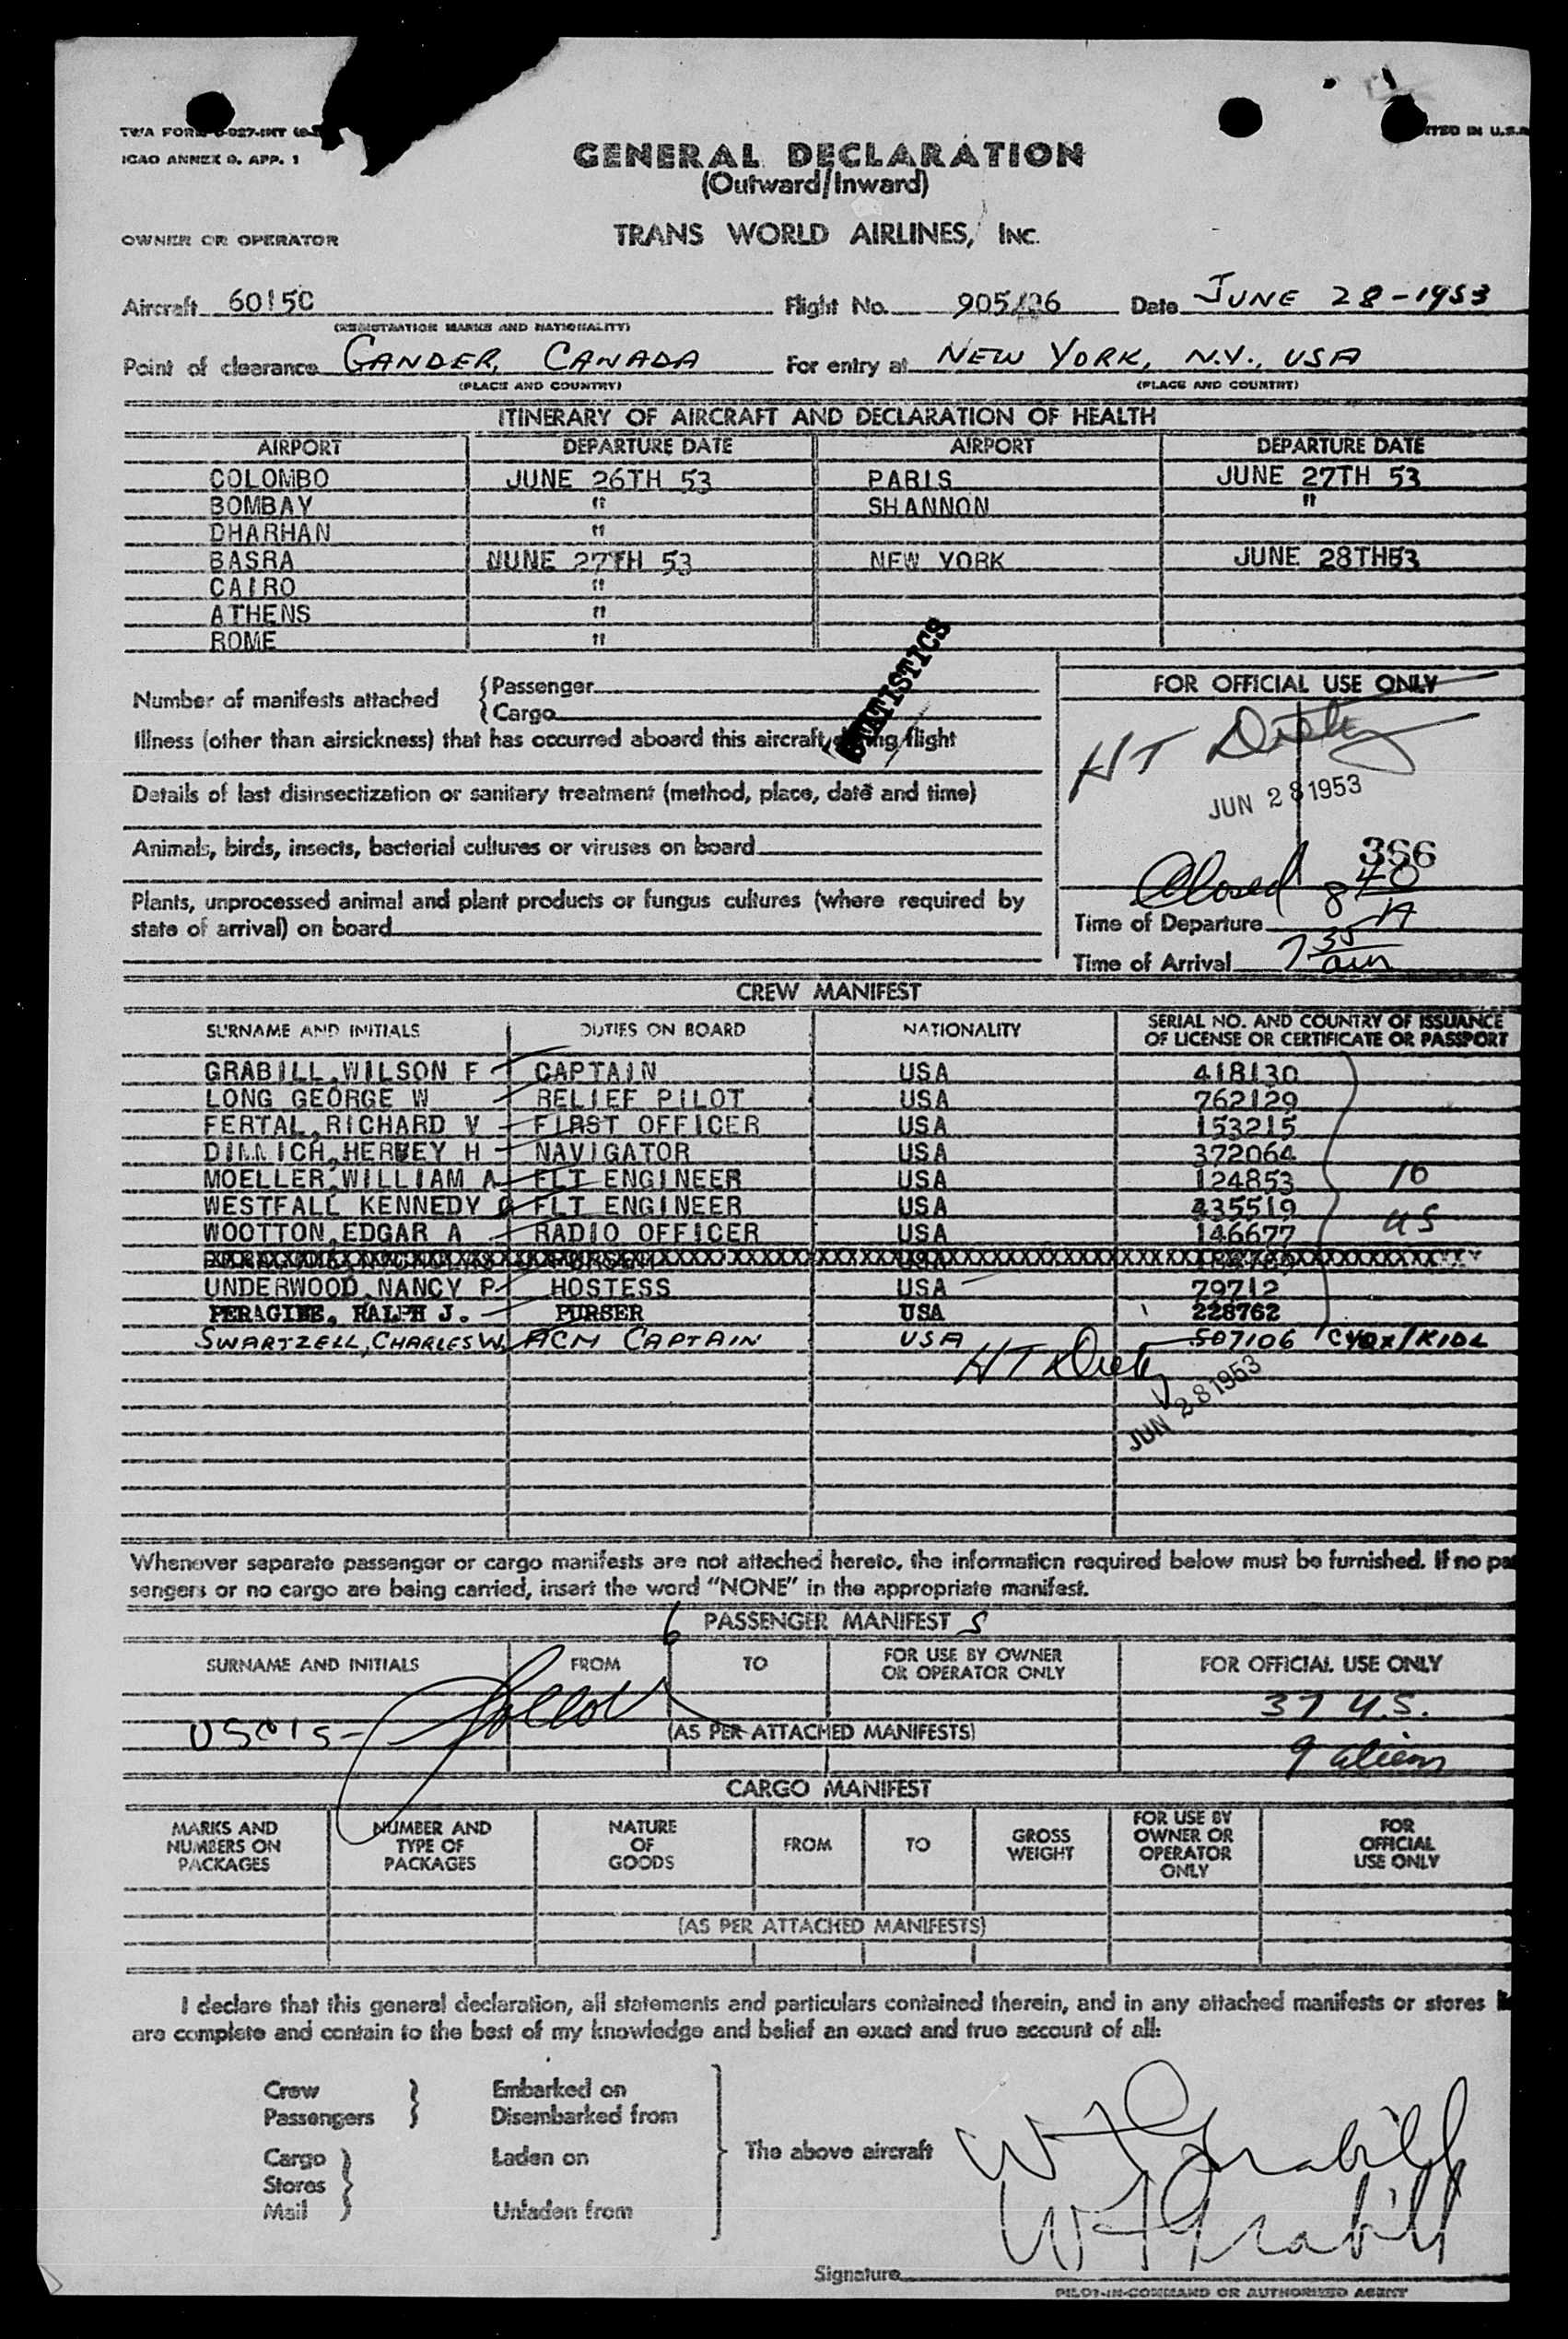 TWA FORM
ICAO ANNEX 9. APP. 1
GENERAL DECLARATION
(Outward/Inward)
OWNER OR OPERATOR TRANS WORLD AIRLINES, INC.
Aircraft 6015C Flight No. 905/26 Date JUNE 28-1953
(REGISTRATION MARKS AND NATIONALITY)
Point of clearance GANDER, CANADA For entry at NEW YORK, N.Y., USA
(PLACE AND COUNTRY) (PLACE AND COUNTRY)
ITINERARY OF AIRCRAFT AND DECLARATION OF HEALTH
AIRPORT DEPARTURE DATE AIRPORT DEPARTURE DATE
COLOMBO JUNE 26TH 53 PARIS JUNE 27TH 53
BOMBAY " SHANNON "
DHARHAN "
BASRA NUNE 27TH 53 NEW YORK JUNE 28TH53
CAIRO "
ATHENS "
ROME "
STATISTICS
Number of manifests attached { Passenger
{ Cargo
Illness (other than airsickness) that has occurred aboard this aircraft during flight
Details of last disinsectization or sanitary treatment (method, place, date and time)
Animals, birds, insects, bacterial cultures or viruses on board
Plants, unprocessed animal and plant products or fungus cultures (where required by
state of arrival) on board
FOR OFFICIAL USE ONLY
HT
JUN 28 1953
366
Closed 8 40 A
Time of Departure
Time of Arrival 7 35 am
CREW MANIFEST
SURNAME AND INITIALS DUTIES ON BOARD NATIONALITY SERIAL NO. AND COUNTRY OF ISSUANCE
OF LICENSE OR CERTIFICATE OR PASSPORT
GRABILL,WILSON F CAPTAIN USA 418130
LONG GEORGE W RELIEF PILOT USA 762129
FERTAL,RICHARD V FIRST OFFICER USA 153215
HERVEY H NAVIGATOR USA 372064
MOELLER,WILLIAM A FLT ENGINEER USA 124853 10
WESTFALL KENNEDY G FLT ENGINEER USA 435519 US
WOOTTON,EDGAR A RADIO OFFICER USA 146677
UNDERWOOD,NANCY P HOSTESS USA 79712
PERAGINE, RALPH J. PURSER USA 228762
SWARTZELL, CHARLES W. ACM CAPTAIN USA 507106 CYQX/KIDL
HT
JUN 28 1953
Whenever separate passenger or cargo manifests are not attached hereto, the information required below must be furnished. If no pas
sengers or no cargo are being carried, insert the word "NONE" in the appropriate manifest.
6 PASSENGER MANIFEST S
SURNAME AND INITIALS FROM TO FOR USE BY OWNER
OR OPERATOR ONLY FOR OFFICIAL USE ONLY
37 U.S.
(AS PER ATTACHED MANIFESTS)
9 aliens
CARGO MANIFEST
MARKS AND
NUMBERS ON
PACKAGES
NUMBER AND
TYPE OF
PACKAGES
NATURE
OF
GOODS
FROM
TO
GROSS
WEIGHT
FOR USE BY
OWNER OR
OPERATOR
ONLY
FOR
OFFICIAL
USE ONLY
(AS PER ATTACHED MANIFESTS)
I declare that this general declaration, all statements and particulars contained therein, and in any attached manifests or stores
are complete and contain to the best of my knowledge and belief an exact and true account of all:
Crew Embarked on
Passengers } Disembarked from
Cargo Laden on The above aircraft W F Grabill
Stores }
Mail Unladen from W F Grabill
Signature
PILOT-IN-COMMAND OR AUTHORIZED AGENT